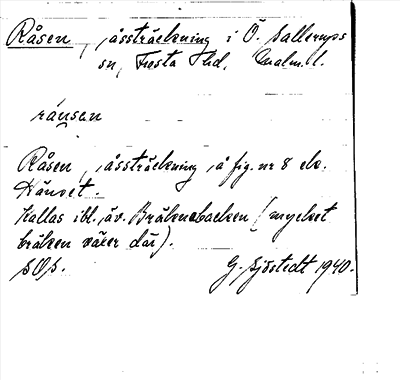 Råsen, åssträckning i Ö. Sallerups
sn, Frosta hd, Malm. l.
rånsen
Råsen, åssträckning, å fig. nr 8 ek.
Hänset.
Kallas ibl. äv. Bräknabacken (mycket
bräken växer där).
G. Sjöstedt 1940.